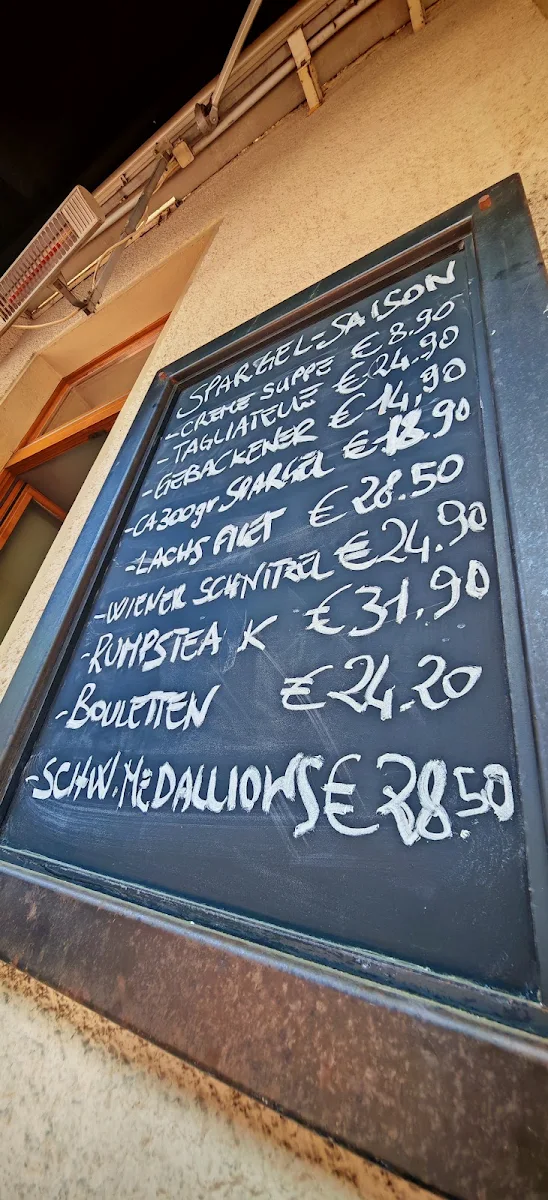 SPARGEL-SAISON
-CREME SUPPE €8.90
-TAGLIATELLE €24.90
-GEBACKENER €14,90
-CA300gr SPARGEL €18.90
-LACHS FILET €28.50
-WIENER SCHNITZEL €24.90
-RUMPSTEAK €31.90
-BOULETTEN €24.20
-SCHW.MEDALLIONS €28.50